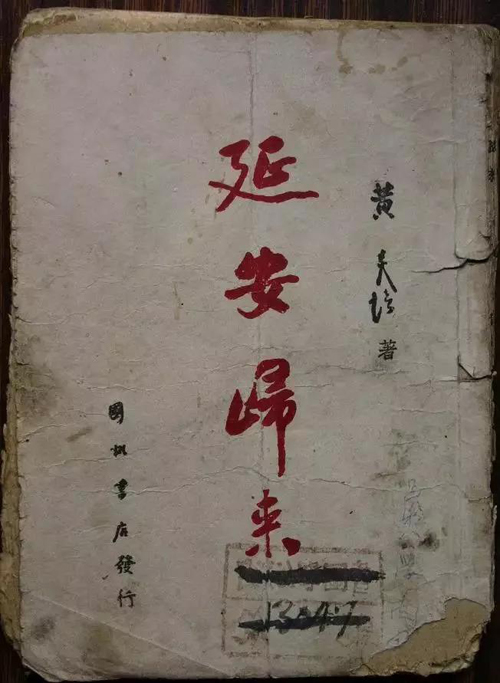 黄炎培著
延安歸来
國訊書店發行
1304·7